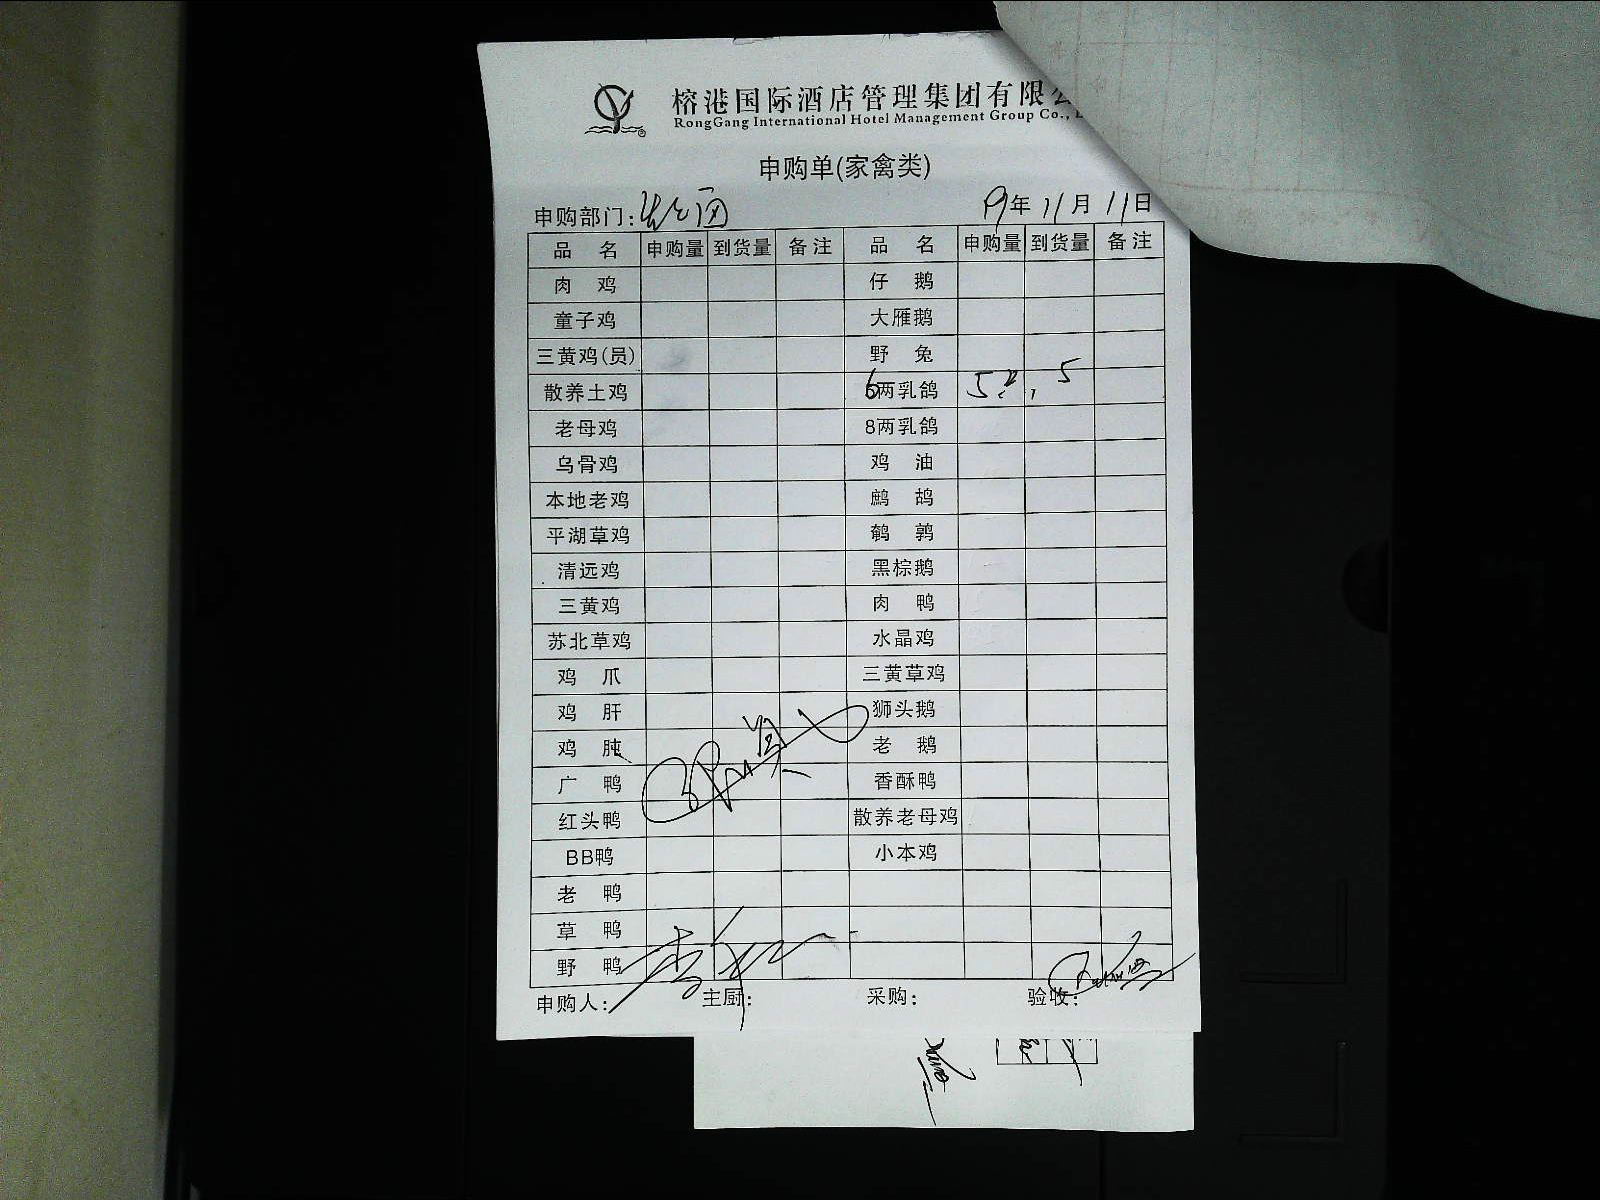 榕港国际酒店管理集团有限
RongGang International Hotel Management Group Co.,
申购单(家禽类)
申购部门: 19年 11月 11日
品 名 申购量 到货量 备注 品 名 申购量 到货量 备注
肉 鸡 仔 鹅
童子鸡 大雁鹅
三黄鸡(员) 野 兔
散养土鸡 6两乳鸽 5 5
老母鸡 8两乳鸽
乌骨鸡 鸡 油
本地老鸡 鹧 鸪
平湖草鸡 鹌 鹑
清远鸡 黑棕鹅
三黄鸡 肉 鸭
苏北草鸡 水晶鸡
鸡 爪 三黄草鸡
鸡 肝 狮头鹅
鸡 肫 老 鹅
广 鸭 香酥鸭
红头鸭 散养老母鸡
BB鸭 小本鸡
老 鸭
草 鸭
野 鸭
申购人: 主厨: 采购: 验收: